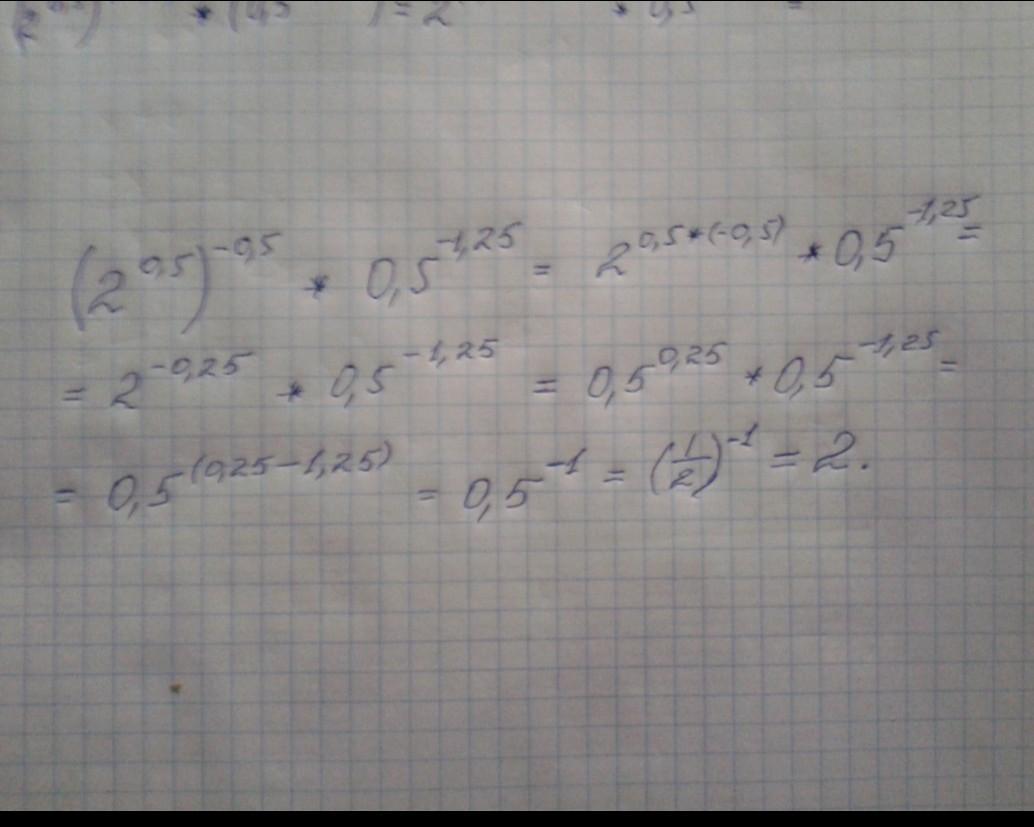 (2^0,5)^-0,5 * 0,5^-1,25 = 2^0,5*(-0,5) * 0,5^-1,25 =
= 2^-0,25 * 0,5^-1,25 = 0,5^0,25 * 0,5^-1,25 =
= 0,5^(0,25-1,25) = 0,5^-1 = (1/2)^-1 = 2.